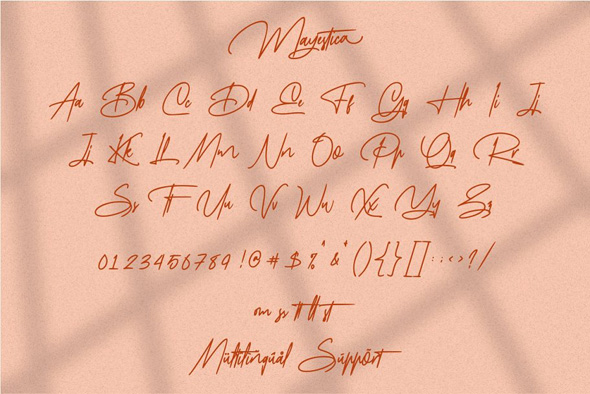 Mayestica
Aa Bb Cc Dd Ee Ff Gg Hh Ii Jj
Jj Kk Ll Mm Nn Oo Pp Qq Rr
Ss Tt Uu Vv Ww Xx Yy Zz
0123456789 !@#$%^&*(){}[]:;<>?/
om ss tt ll st
Mültilingúàl Süppört